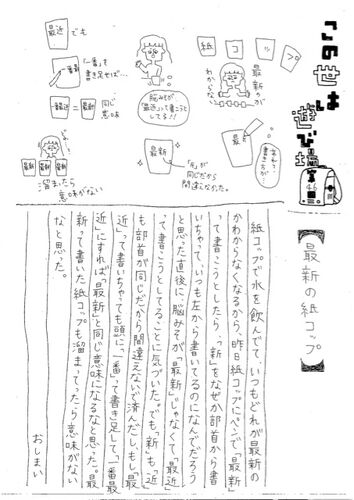 この世は遊び場
46
【最新の紙コップ】
紙コップ
最新が
わからない
最新
あれ?
書き方が…
脳みそが
「最近」って書こうと
してる!!
最新
「斤」が
同じだから
間違えなかった。
最近 でも
一番最近
「一番」を
書き足せば…
一番最近 = 最新 同じ
意味
最新 最新 最新
溜まったら
意味がない
紙コップで水を飲んでて、いつもどれが最新の
かわからなくなるから、昨日紙コップにペンで「最新
って書こうとしたら、「新」をなぜか部首から書
いちゃって、いつも左から書いてるのになんでだろう
と思った直後に、脳みそが「最新」じゃなくて「最近
って書こうとしてることに気づいた。でも「新」も「近」
も部首が同じだから間違えないで済んだし、もし「最
近」って書いちゃっても頭に「一番」って書き足して、「一番最
近」にすれば「最新」と同じ意味になるなと思った。最
新って書いた紙コップも溜まってったら意味がない
なと思った。
おしまい